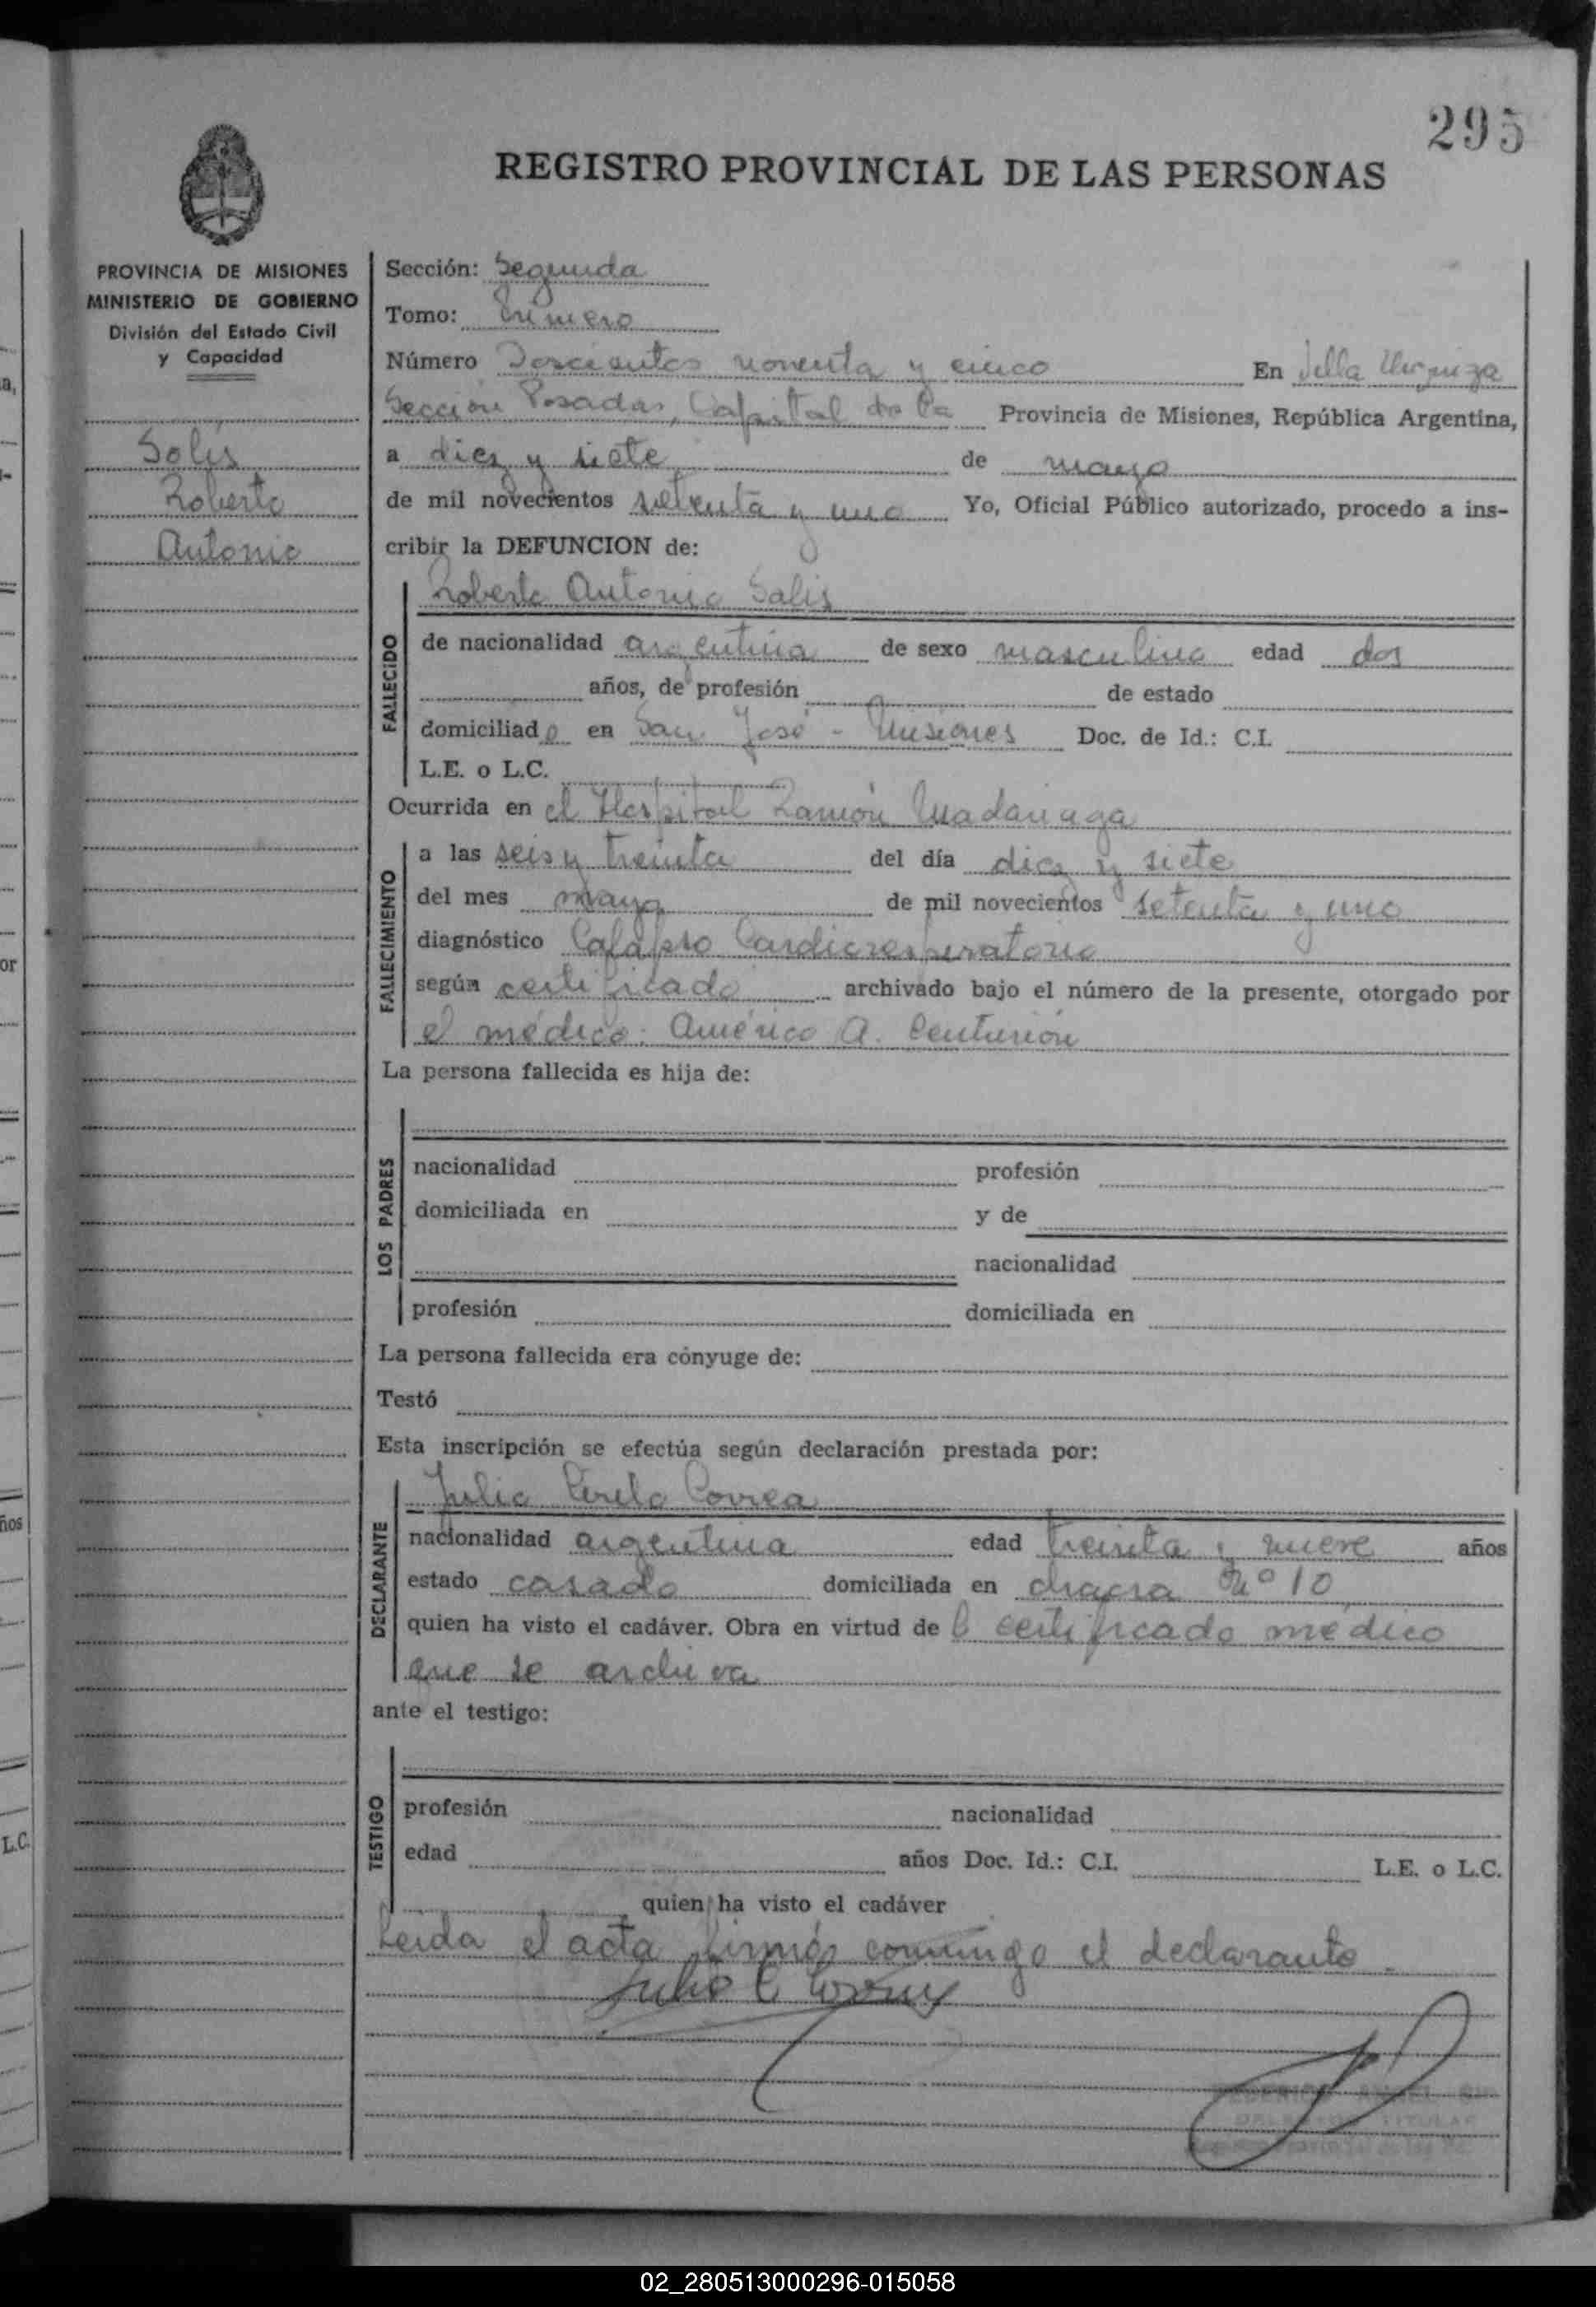 295
REGISTRO PROVINCIAL DE LAS PERSONAS
PROVINCIA DE MISIONES
MINISTERIO DE GOBIERNO
División del Estado Civil
y Capacidad
Solis
Roberto
Antonio
Sección: Segunda
Tomo: Primero
Número Doscientos noventa y cinco En Villa Urquiza
Sección Posadas, Capital de la Provincia de Misiones, República Argentina,
a diez y siete de mayo
de mil novecientos setenta y uno Yo, Oficial Público autorizado, procedo a ins-
cribir la DEFUNCION de:
Roberto Antonio Solis
FALLECIDO
de nacionalidad argentina de sexo masculino edad dos
años, de profesión de estado
domiciliado en San José - Misiones Doc. de Id.: C.I.
L.E. o L.C.
Ocurrida en el Hospital Ramón Madariaga
FALLECIMIENTO
a las seis y treinta del día diez y siete
del mes mayo de mil novecientos setenta y uno
diagnóstico Colapso Cardiorespiratorio
según certificado archivado bajo el número de la presente, otorgado por
el médico: Américo A. Centurión
La persona fallecida es hija de:
LOS PADRES
nacionalidad profesión
domiciliada en y de
nacionalidad
profesión domiciliada en
La persona fallecida era cónyuge de:
Testó
Esta inscripción se efectúa según declaración prestada por:
Julio Correa
DECLARANTE
nacionalidad argentina edad treinta y nueve años
estado casado domiciliada en chacra Nº 10
quien ha visto el cadáver. Obra en virtud de l certificado médico
que se archiva
ante el testigo:
TESTIGO
profesión nacionalidad
edad años Doc. Id.: C.I. L.E. o L.C.
quien ha visto el cadáver
Leida el acta firmó conmigo el declarante.
Julio C Correa
TITULAR
02_280513000296-015058